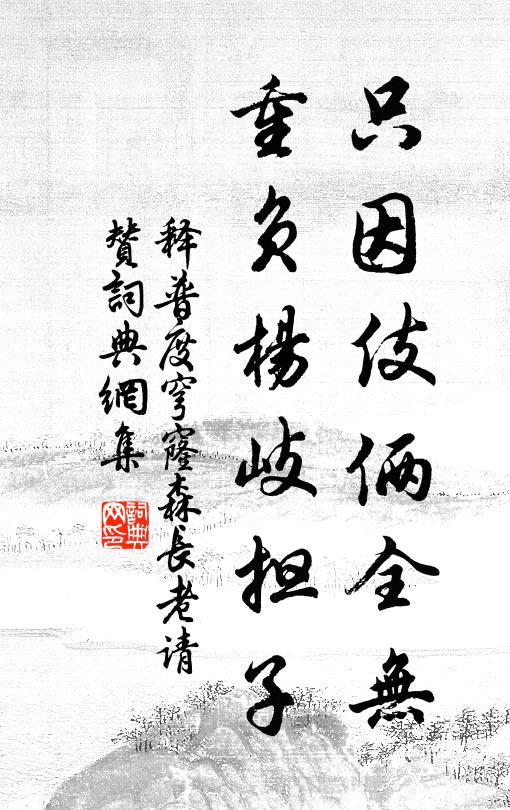 只因伎俩全無
重负楊岐担子
释普度穹窿森長老请
贊詞典網集
詞典
网印